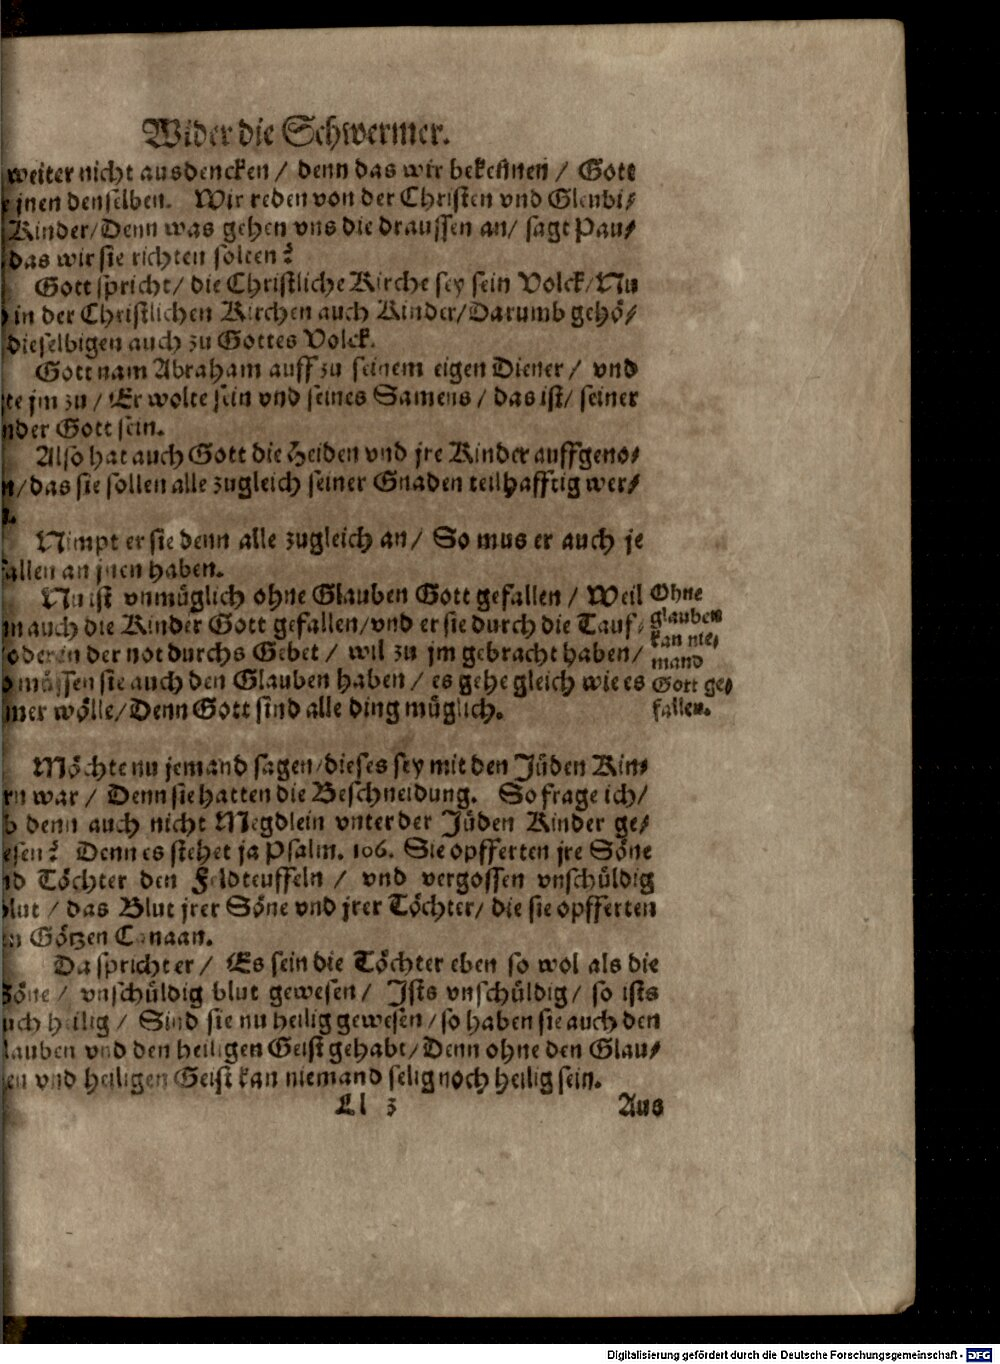 Wider die Schwermer.
weiter nicht ausdencken / denn das wir bekennen / Gott
jnen denselben. Wir reden von der Christen vnd Gleubi/
Kinder/Denn was gehen vns die draussen an/ sagt Pau/
das wir sie richten solten?
Gott spricht/ die Christliche Kirche sey sein Volck/Nu
in der Christlichen Kirchen auch Kinder/Darumb gehö/
dieselbigen auch zu Gottes Volck.
Gott nam Abraham auff zu seinem eigen Diener / vnd
te jm zu / Er wolte sein vnd seines Samens / das ist/ seiner
nder Gott sein.
Also hat auch Gott die Heiden vnd jre Kinder auffgeno/
n/das sie sollen alle zugleich seiner Gnaden teilhafftig wer/
Nimpt er sie denn alle zugleich an / So mus er auch je
allen an jnen haben.
Nu ist vnmüglich ohne Glauben Gott gefallen / Weil
m auch die Kinder Gott gefallen/vnd er sie durch die Tauf/
oder in der not durchs Gebet / wil zu jm gebracht haben/
müssen sie auch den Glauben haben / es gehe gleich wie es
mer wölle/Denn Gott sind alle ding müglich.
Ohne
glauben
kan nie/
mand
Gott ge/
fallen.
Möchte nu jemand sagen/dieses sey mit den Jüden Kin/
rn war / Denn sie hatten die Beschneidung. So frage ich/
b denn auch nicht Megdlein vnter der Jüden Kinder ge/
esen? Denn es stehet ja Psalm. 106. Sie opfferten jre Söne
nd Töchter den Feldteuffeln / vnd vergossen vnschüldig
lut / das Blut jrer Söne vnd jrer Töchter/ die sie opfferten
n Götzen Canaan.
Da spricht er / Es sein die Töchter eben so wol als die
Söne / vnschüldig blut gewesen / Ists vnschüldig / so ists
uch heilig / Sind sie nu heilig gewesen /so haben sie auch den
lauben vnd den heiligen Geist gehabt/Denn ohne den Glau/
en vnd heiligen Geist kan niemand selig noch heilig sein.
Ll 3 Aus
Digitalisierung gefördert durch die Deutsche Forschungsgemeinschaft - DFG